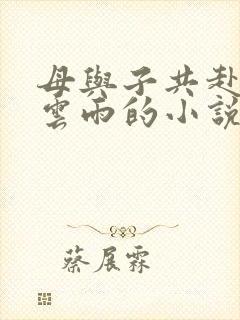 母與子共赴
雲雨的小說
蔡展霖